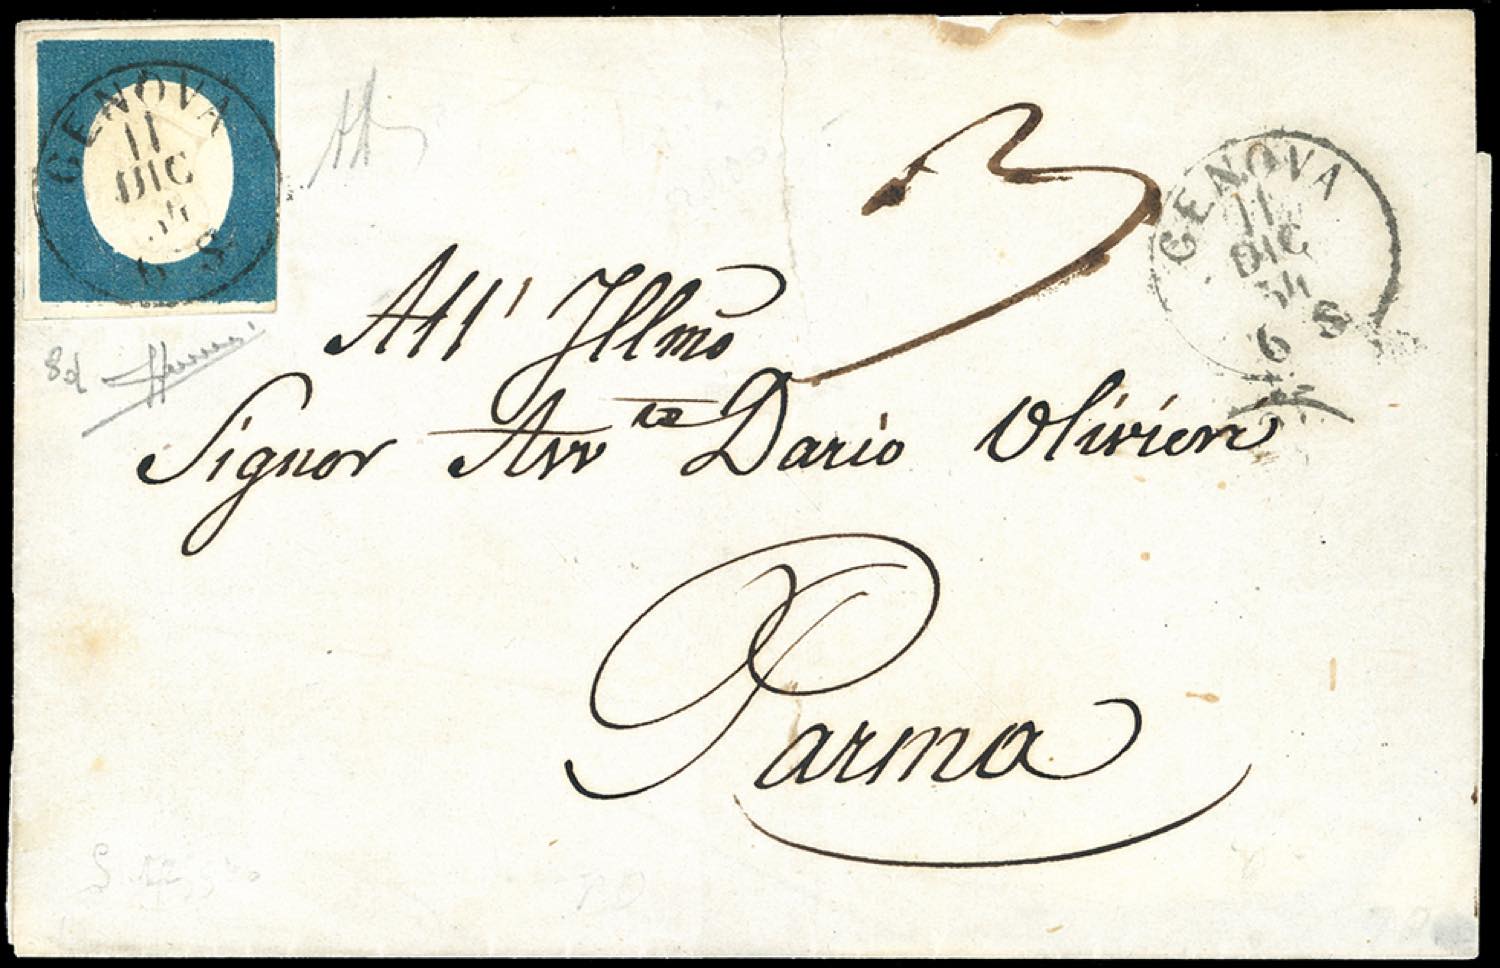 GENOVA
11
DIC
54
6 S
3
GENOVA
11
DIC
54
6 S
All' Illmo
8d
Signor Avv to Dario Olivieri
Parma